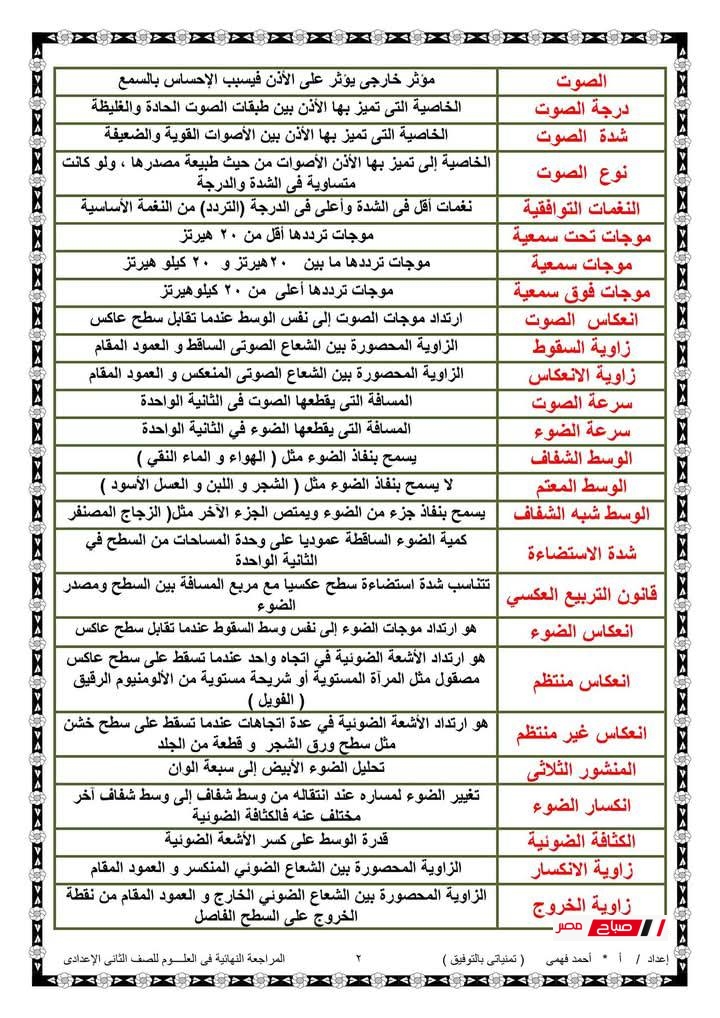 الصوت
مؤثر خارجى يؤثر على الأذن فيسبب الإحساس بالسمع
درجة الصوت
الخاصية التى تميز بها الأذن بين طبقات الصوت الحادة والغليظة
شدة الصوت
الخاصية التى تميز بها الأذن بين الأصوات القوية والضعيفة
نوع الصوت
الخاصية إلى تميز بها الأذن الأصوات من حيث طبيعة مصدرها ، ولو كانت
متساوية فى الشدة والدرجة
النغمات التوافقية
نغمات أقل فى الشدة وأعلى فى الدرجة (التردد) من النغمة الأساسية
موجات تحت سمعية
موجات ترددها أقل من ٢٠ هيرتز
موجات سمعية
موجات ترددها ما بين ٢٠هيرتز و ٢٠ كيلو هيرتز
موجات فوق سمعية
موجات ترددها أعلى من ٢٠ كيلوهيرتز
انعكاس الصوت
ارتداد موجات الصوت إلى نفس الوسط عندما تقابل سطح عاكس
زاوية السقوط
الزاوية المحصورة بين الشعاع الصوتى الساقط و العمود المقام
زاوية الانعكاس
الزاوية المحصورة بين الشعاع الصوتى المنعكس و العمود المقام
سرعة الصوت
المسافة التى يقطعها الصوت فى الثانية الواحدة
سرعة الضوء
المسافة التى يقطعها الضوء في الثانية الواحدة
الوسط الشفاف
يسمح بنفاذ الضوء مثل ( الهواء و الماء النقي )
الوسط المعتم
لا يسمح بنفاذ الضوء مثل ( الشجر و اللبن و العسل الأسود )
الوسط شبه الشفاف
يسمح بنفاذ جزء من الضوء ويمتص الجزء الآخر مثل( الزجاج المصنفر
شدة الاستضاءة
كمية الضوء الساقطة عموديا على وحدة المساحات من السطح في
الثانية الواحدة
قانون التربيع العكسي
تتناسب شدة استضاءة سطح عكسيا مع مربع المسافة بين السطح ومصدر
الضوء
انعكاس الضوء
هو ارتداد موجات الضوء إلى نفس وسط السقوط عندما تقابل سطح عاكس
انعكاس منتظم
هو ارتداد الأشعة الضوئية في اتجاه واحد عندما تسقط على سطح عاكس
مصقول مثل المرآة المستوية أو شريحة مستوية من الألومنيوم الرقيق
( الفويل )
انعكاس غير منتظم
هو ارتداد الأشعة الضوئية في عدة اتجاهات عندما تسقط على سطح خشن
مثل سطح ورق الشجر و قطعة من الجلد
المنشور الثلاثى
تحليل الضوء الأبيض إلى سبعة الوان
انكسار الضوء
تغيير الضوء لمساره عند انتقاله من وسط شفاف إلى وسط شفاف آخر
مختلف عنه فالكثافة الضوئية
الكثافة الضوئية
قدرة الوسط على كسر الأشعة الضوئية
زاوية الانكسار
الزاوية المحصورة بين الشعاع الضوئي المنكسر و العمود المقام
زاوية الخروج
الزاوية المحصورة بين الشعاع الضوئي الخارج و العمود المقام من نقطة
الخروج على السطح الفاصل
صباح مصر
إعداد / أ * أحمد فهمى ( تمنياتى بالتوفيق ) ٢ المراجعة النهائية فى العلـــوم للصف الثانى الإعدادى